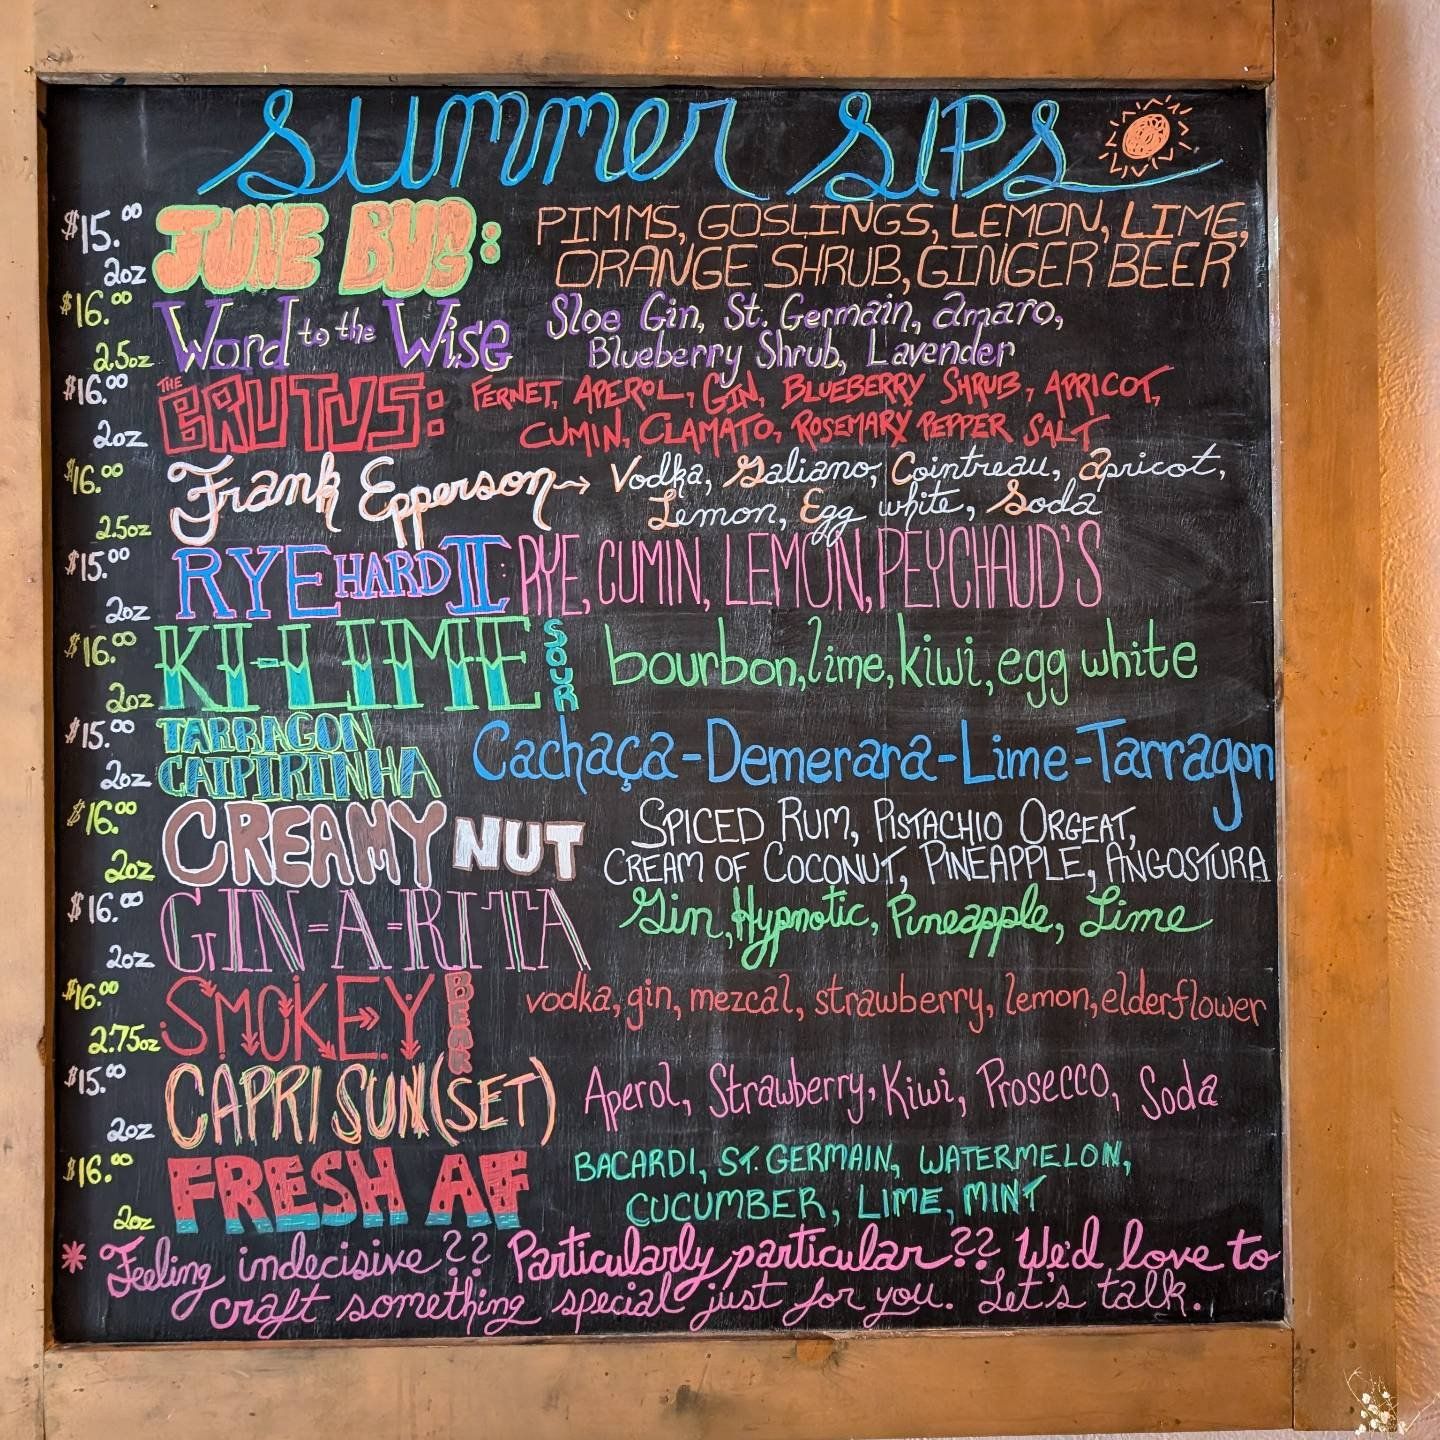 Summer Sips
$15.00 JUNE BUG: PIMMS, GOSLINGS, LEMON, LIME,
2oz ORANGE SHRUB, GINGER BEER
$16.00 Word to the Wise Sloe Gin, St. Germain, amaro,
2.5oz Blueberry Shrub, Lavender
$16.00 THE BRUTUS: FERNET, APEROL, GIN, BLUEBERRY SHRUB, APRICOT,
2oz CUMIN, CLAMATO, ROSEMARY PEPPER SALT
$16.00 Frank Epperson → Vodka, Galiano, Cointreau, apricot,
2.5oz Lemon, Egg white, Soda
$15.00 RYE HARD II: RYE, CUMIN, LEMON, PEYCHAUD'S
2oz
$16.00 KI-LIME SOUR bourbon, lime, kiwi, egg white
2oz
$15.00 TARRAGON Cachaça-Demerara-Lime-Tarragon
2oz CAIPIRINHA
$16.00 CREAMY NUT SPICED RUM, PISTACHIO ORGEAT,
2oz CREAM OF COCONUT, PINEAPPLE, ANGOSTURA
$16.00 GIN-A-RITA Gin, Hypnotic, Pineapple, Lime
2oz
$16.00 SMOKEY BEAR vodka, gin, mezcal, strawberry, lemon, elderflower
2.75oz
$15.00 CAPRI SUN(SET) Aperol, Strawberry, Kiwi, Prosecco, Soda
2oz
$16.00 FRESH AF BACARDI, ST. GERMAIN, WATERMELON,
2oz CUCUMBER, LIME, MINT
* Feeling indecisive?? Particularly particular?? We'd love to
craft something special just for you. Let's talk.